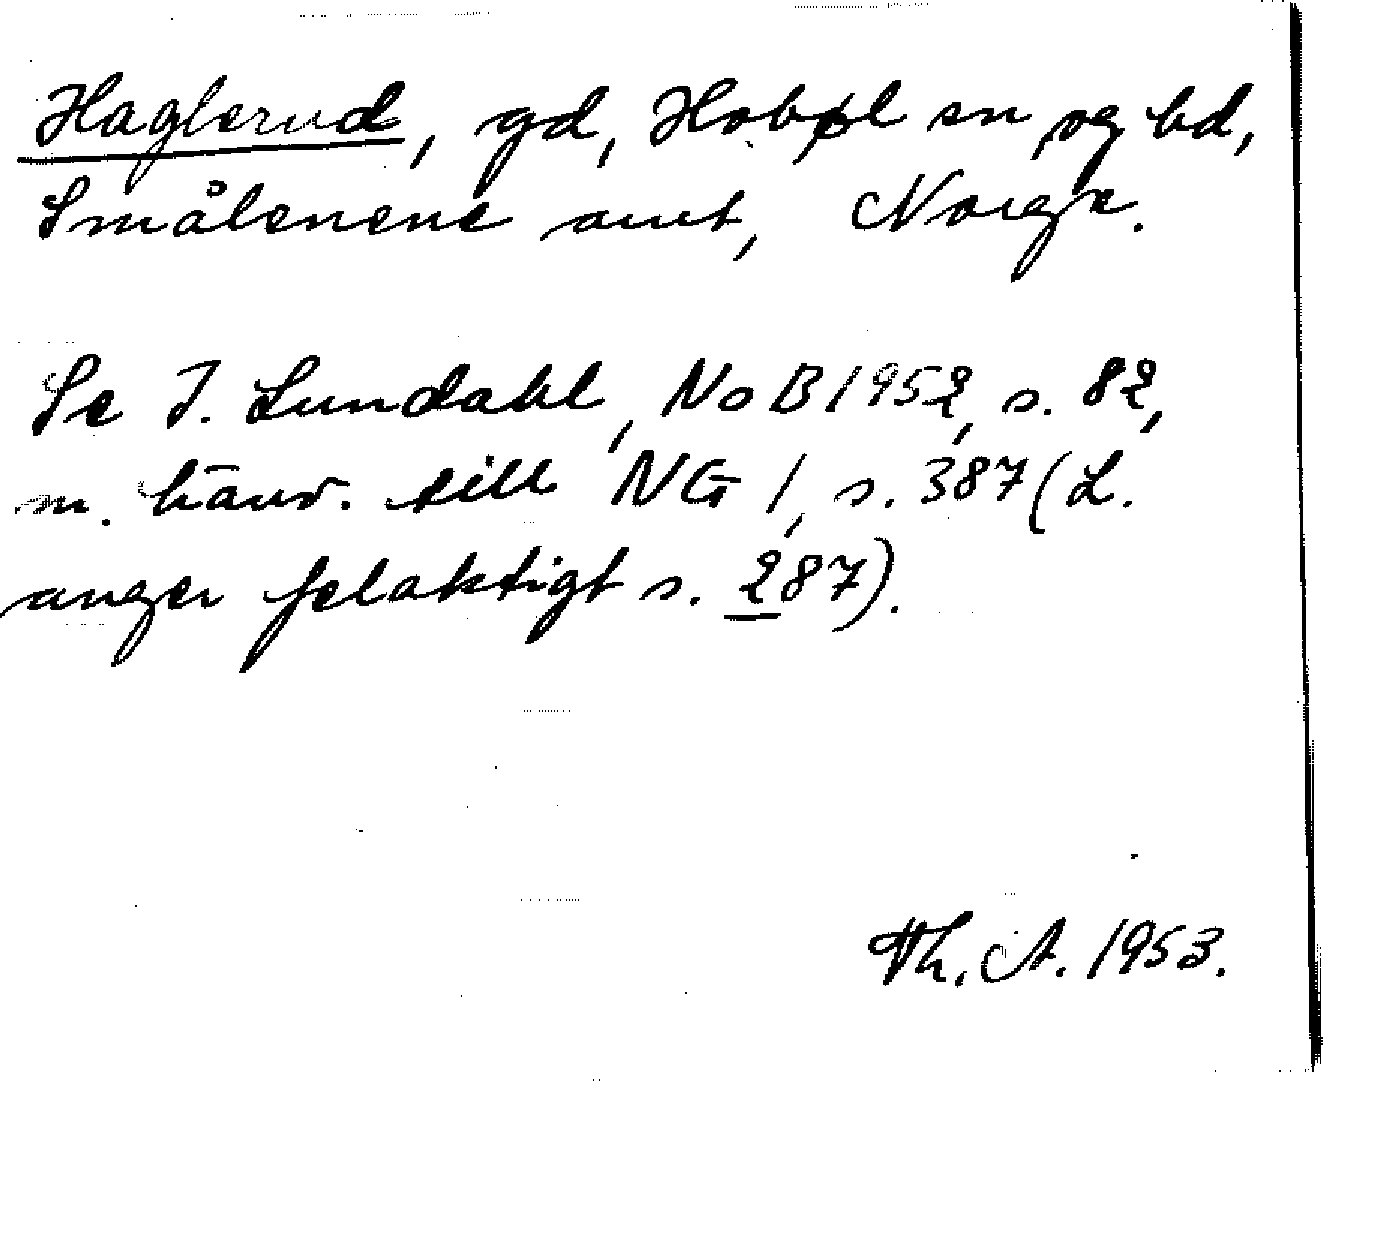 Haglerud, gd, Hobøl sn og bd,
Smålenene amt, Norge.
Se I. Lundahl, NoB 1952, s. 82,
m. hänv. till NG 1, s. 387 (L.
anger felaktigt s. 287).
Th. A. 1953.